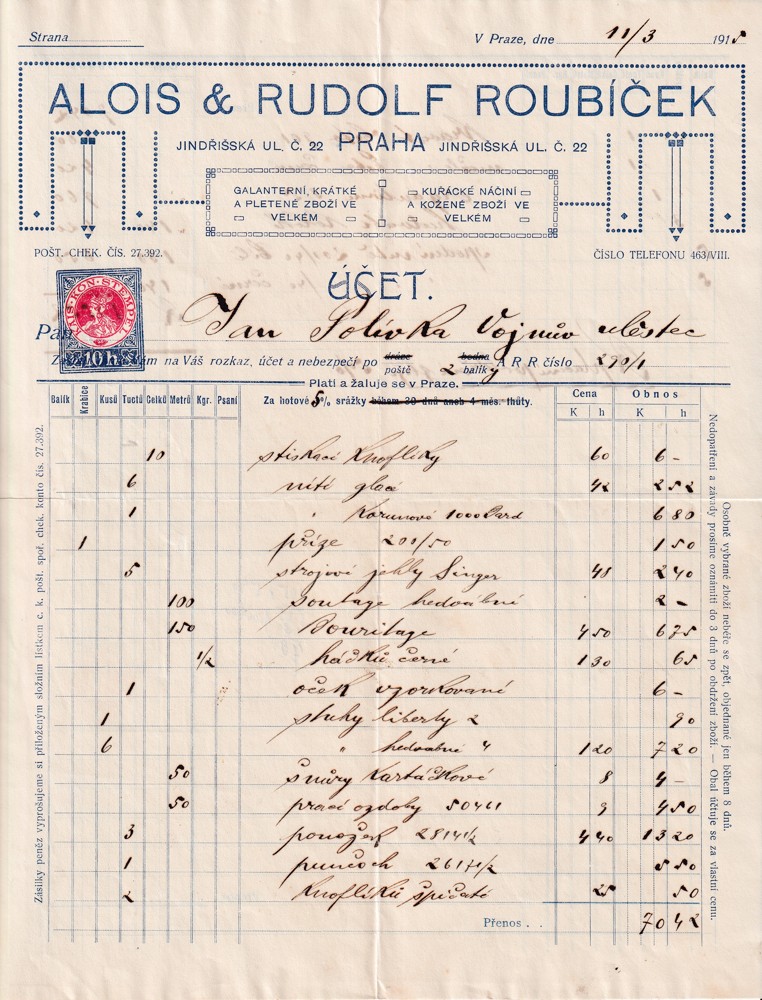 Strana
V Praze, dne 11/3 1915
ALOIS & RUDOLF ROUBÍČEK
JINDŘIŠSKÁ UL. Č. 22 PRAHA JINDŘIŠSKÁ UL. Č. 22
GALANTERNÍ, KRÁTKÉ
A PLETENÉ ZBOŽÍ VE
VELKÉM
KUŘÁCKÉ NÁČINÍ
A KOŽENÉ ZBOŽÍ VE
VELKÉM
POŠT. CHEK. ČÍS. 27.392.
ČÍSLO TELEFONU 463/VIII.
ÚČET.
KAIS·KÖN·STEMPEL
10 h
Pan Jan Polívka Vojnův městec
Vám na Váš rozkaz, účet a nebezpečí po dráze pošte 2 bedna balíky A R R číslo 290/1
Platí a žaluje se v Praze.
Za hotové 5% srážky během 30 dnů aneb 4 měs. lhůty.
Balík Krabice Kusů Tuctů Celků Metrů Kgr. Psaní Cena Obnos
K h K h
10 stiskací knoflíky 60 6 -
6 nití glacé 42 2 52
1 " Korunové 1000 Yard 6 80
1 příze 200/50 1 50
5 strojové jehly Singer 48 2 40
100 soutage hedvábní 2 -
150 4 50 6 75
1/2 háčků černé 1 30 65
1 oček vzorkované 6 -
1 stuhy liberty 2 90
6 " hedvábné 4 1 20 7 20
50 šnůry kartáčkové 8 4 -
50 prací ozdoby 50461 9 4 50
3 ponožek 2814 1/2 4 40 13 20
1 punčoch 2617 1/2 5 50
2 knoflíků špičaté 25 50
Přenos . . 70 42
Zásilky peněz vyprošujeme si přiloženým složním lístkem c. k. pošt. spoř. chek. konto čís. 27.392.
Osobně vybrané zboží nebéře se zpět, objednané jen během 8 dnů.
Nedopatření a závady prosíme oznámiti do 3 dnů po obdržení zboží. — Obal účtuje se za vlastní cenu.